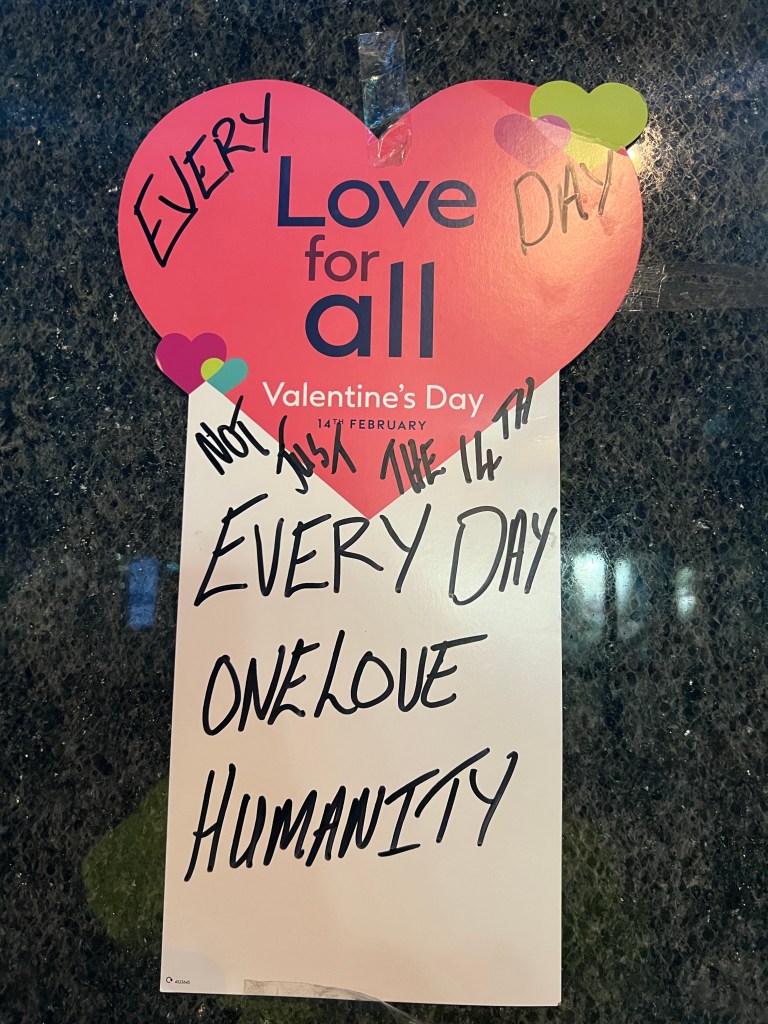 EVERY DAY
Love
for
all
Valentine's Day
14TH FEBRUARY
NOT JUST THE 14TH
EVERY DAY
ONE LOVE
HUMANITY